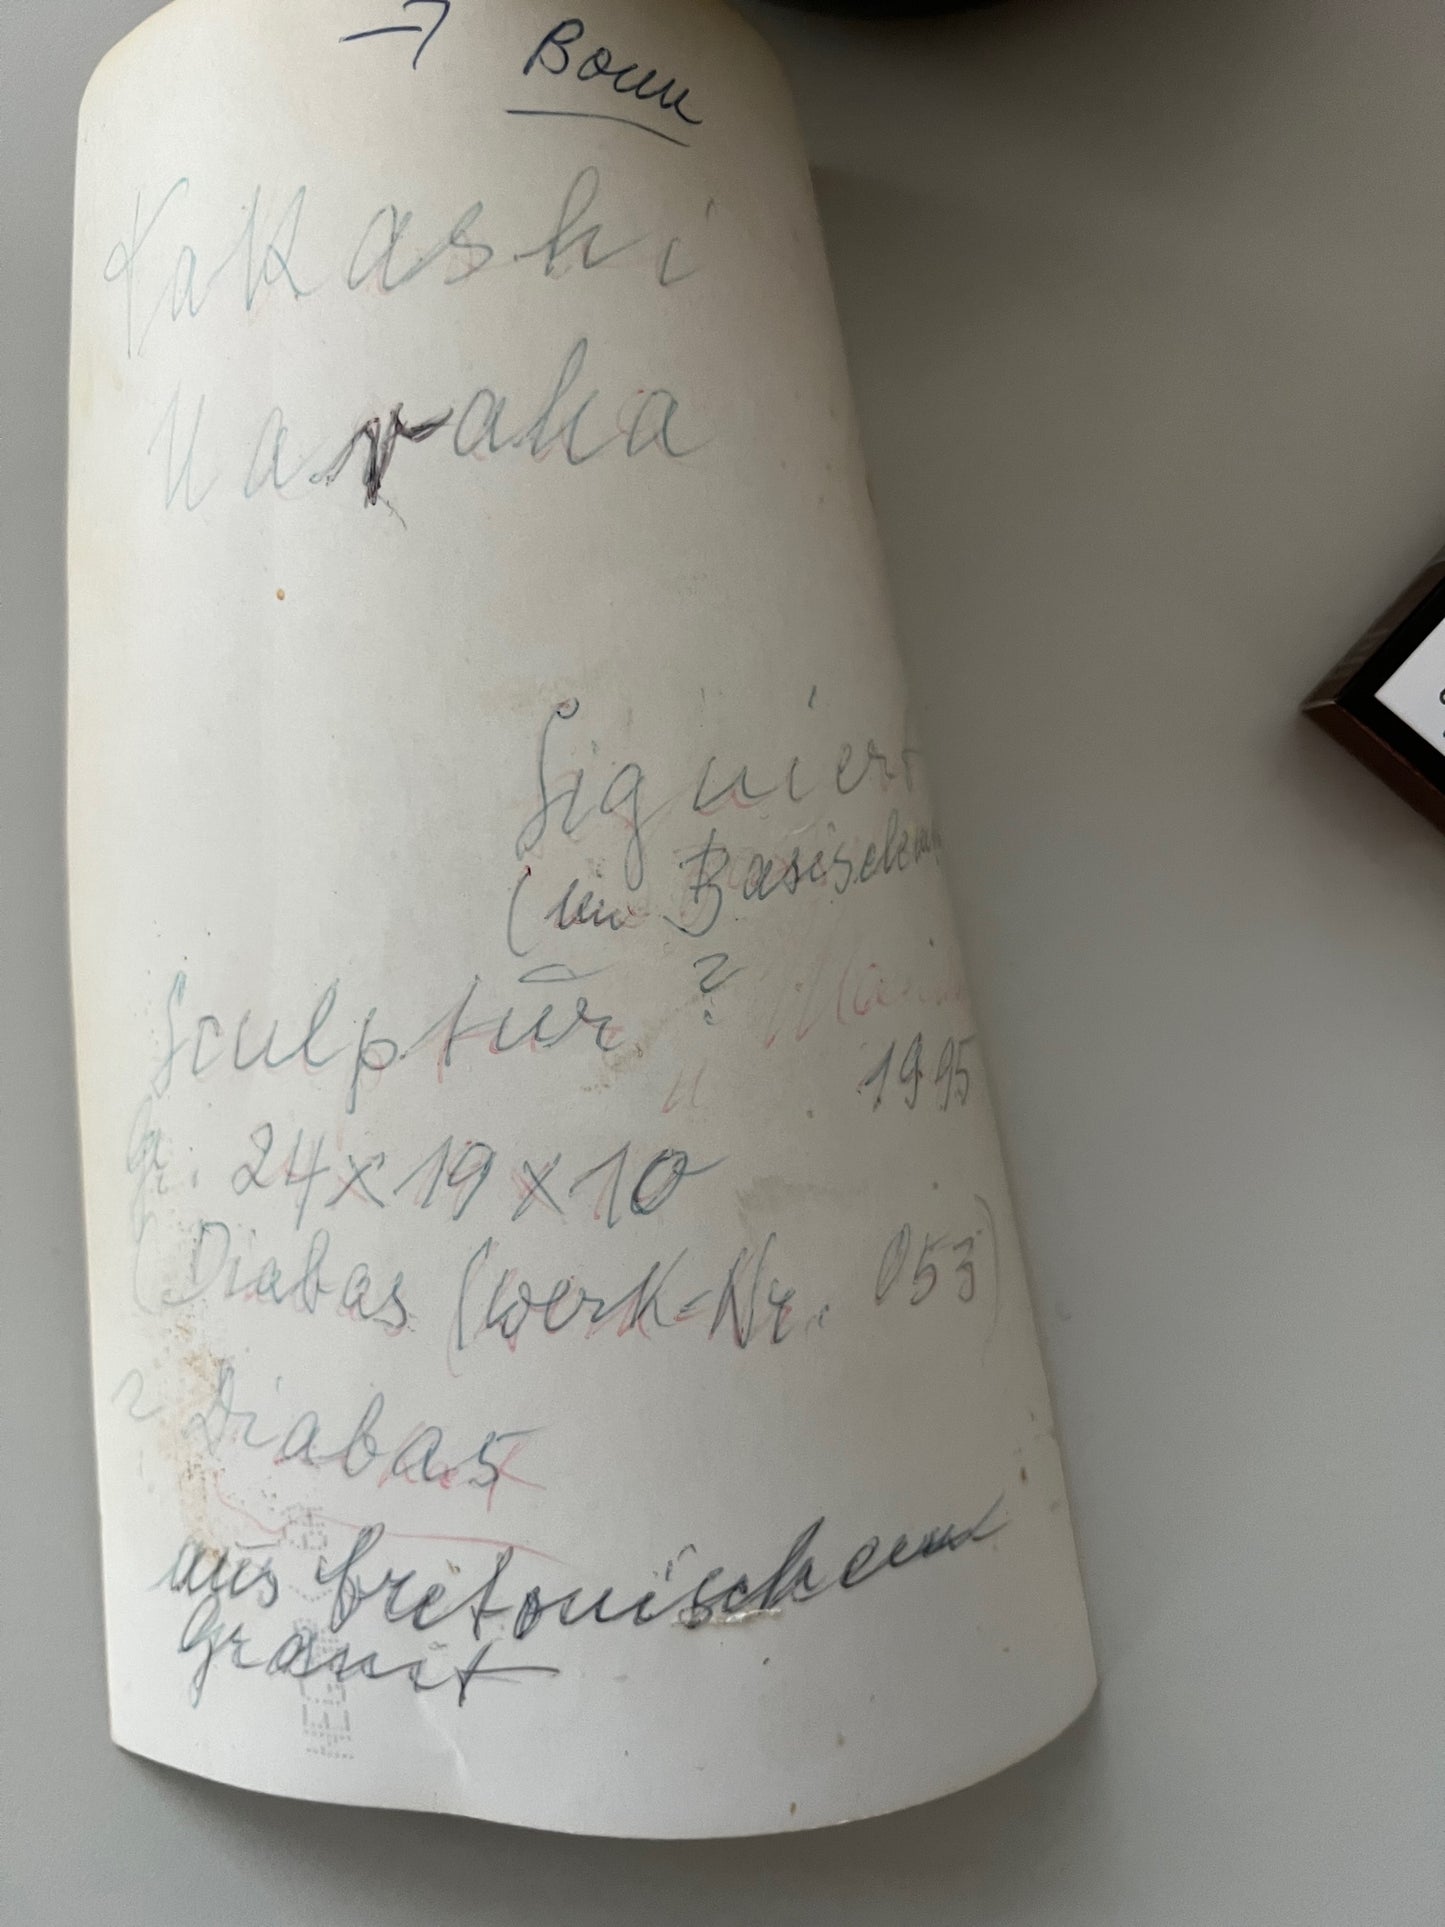 → Bonn
Takashi
Naraha
Signiert
(im
?
Sculptur
1995
Gr. 24x19x10
(Diabas (Werk-Nr. 053)
? Diabas
aus bretonischem
Granit